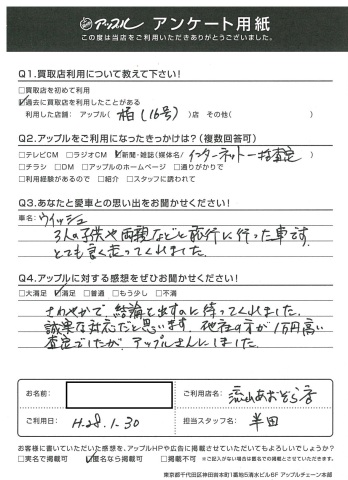 アップル アンケート用紙
この度は当店をご利用いただきありがとうございました。
Q1.買取店利用について教えて下さい!
□買取店を初めて利用
☑過去に買取店を利用したことがある
利用した店舗: アップル( 柏(16号) )店 その他( )
Q2.アップルをご利用になったきっかけは?(複数回答可)
□テレビCM □ラジオCM ☑新聞・雑誌(媒体名/ インターネット一括査定 )
□チラシ □DM □アップルのホームページ □通りがかりで
□利用経験があるので □紹介 □スタッフに誘われて
Q3.あなたと愛車との思い出をお聞かせください!
車名: ウィッシュ
3人の子供や両親などと旅行に行った車です。
とても良く走ってくれました。
Q4.アップルに対する感想をぜひお聞かせください!
□大満足 ☑満足 □普通 □もう少し □不満
さわやかで、結論を出すのに待ってくれました。
誠実な対応だと思います。他社の方が1万円高い
査定でしたが、アップルさんにしました。
お名前:
ご利用店名: 流山あおぞら店
ご利用日: H.28.1.30
担当スタッフ名: 半田
お客様に書いていただいた感想を、アップルHPや広告に掲載させていただいてもよろしいでしょうか?
□実名で掲載可 ☑匿名なら掲載可 □掲載不可 ※ご記入がない場合は匿名での掲載とさせていただきます。
東京都千代田区神田岩本町1番地5清水ビル6F アップルチェーン本部